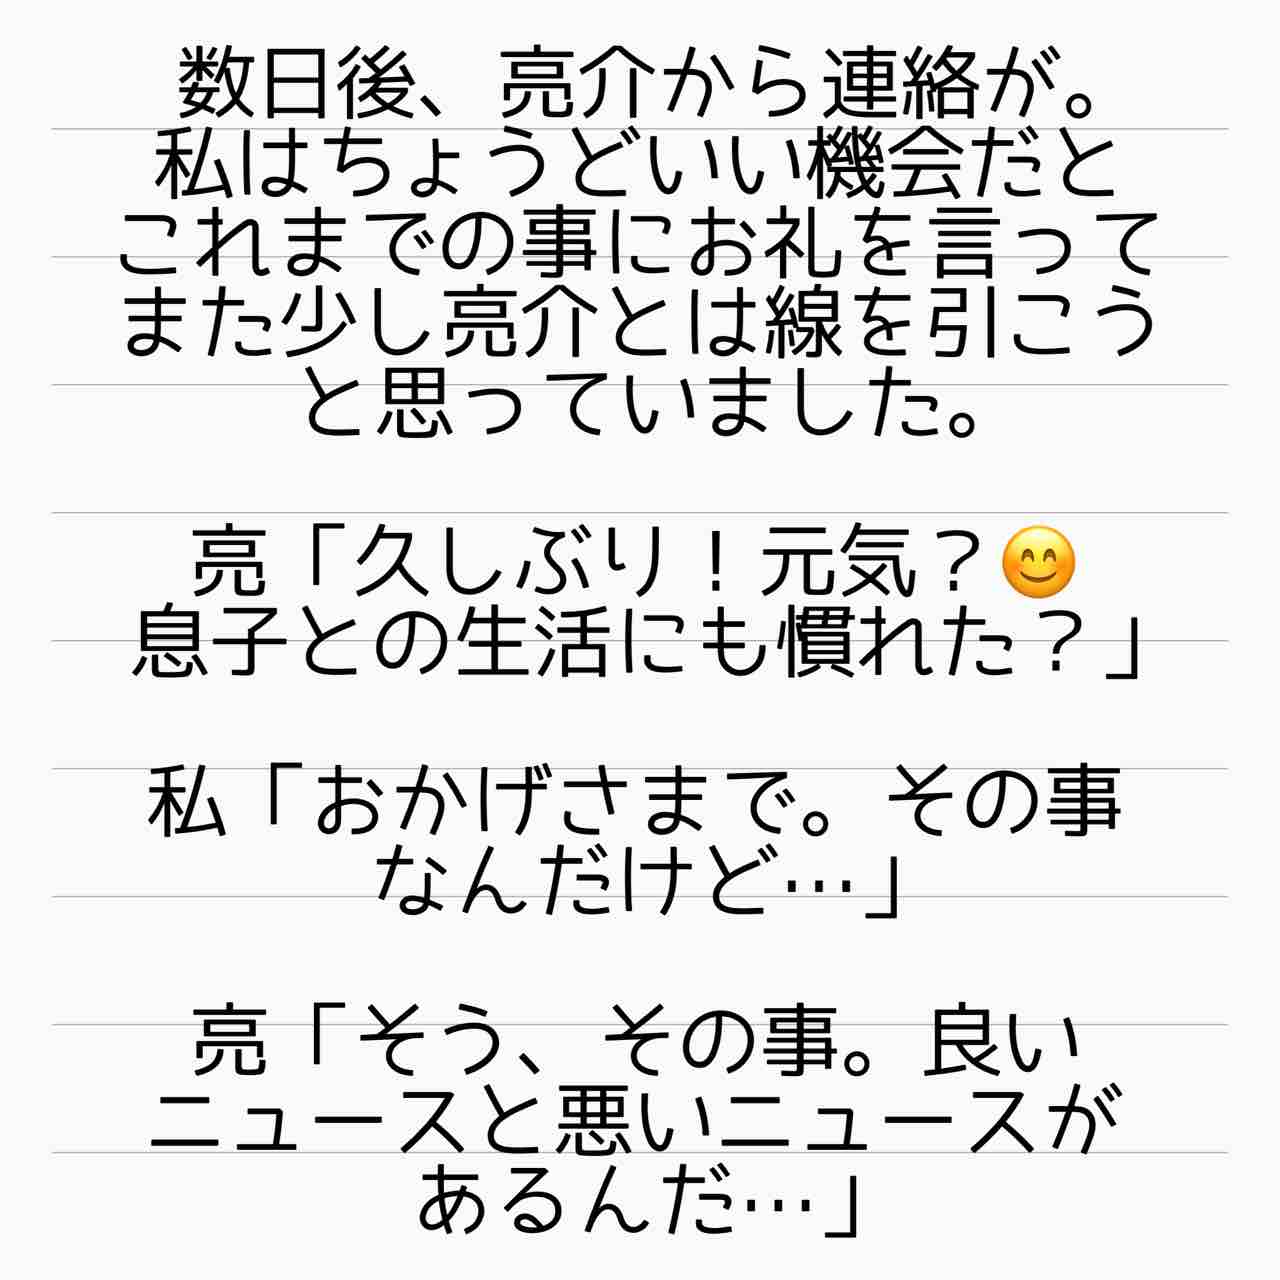 数日後、亮介から連絡が。
私はちょうどいい機会だと
これまでの事にお礼を言って
また少し亮介とは線を引こう
と思っていました。
亮「久しぶり！元気？😊
息子との生活にも慣れた？」
私「おかげさまで。その事
なんだけど…」
亮「そう、その事。良い
ニュースと悪いニュースが
あるんだ…」